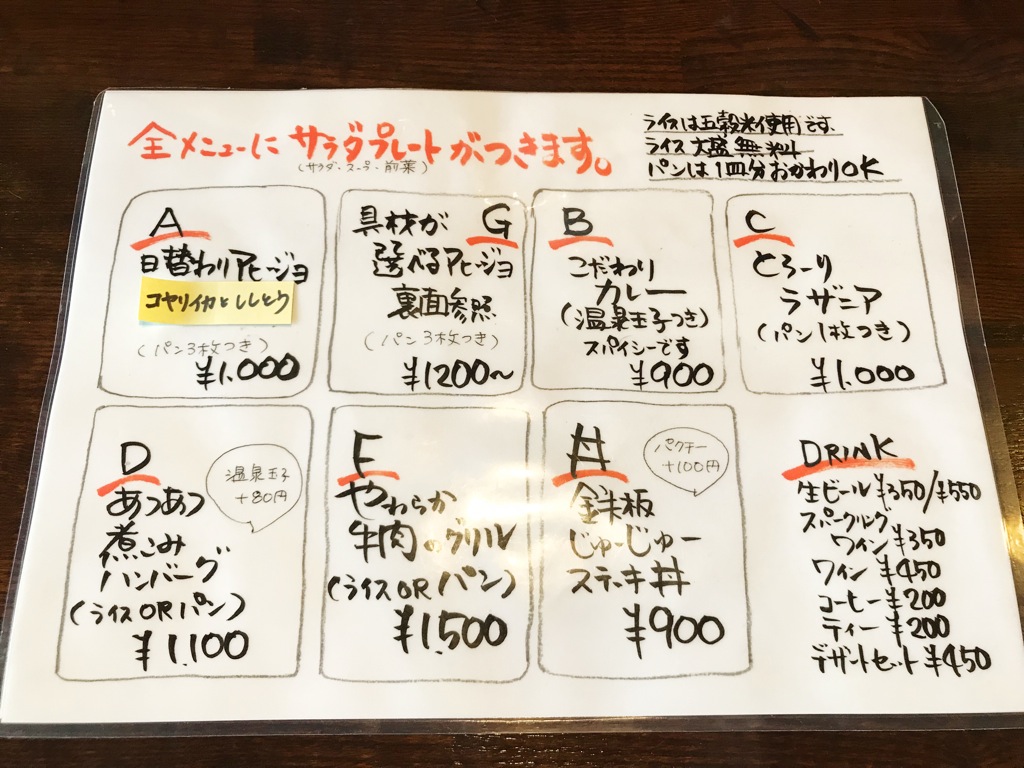 全メニューに サラダプレートがつきます。
(サラダ・スープ・前菜)
ライスは五穀米使用です。
ライス大盛無料
パンは1皿分おかわりOK
A
日替わりアヒージョ
コヤリイカとししとう
(パン3枚つき)
¥1.000
具材が G
選べるアヒージョ
裏面参照
(パン3枚つき)
¥1200〜
B
こだわり
カレー
(温泉玉子つき)
スパイシーです
¥900
C
とろーり
ラザニア
(パン1枚つき)
¥1.000
D
温泉玉子
+80円
あつあつ
煮こみ
ハンバーグ
(ライスORパン)
¥1.100
F
やわらか
牛肉のグリル
(ライスORパン)
¥1.500
丼
パクチー
+100円
鉄板
じゅーじゅー
ステーキ丼
¥900
DRINK
生ビール ¥350/¥550
スパークルク
ワイン ¥350
ワイン ¥450
コーヒー ¥200
ティー ¥200
デザートセット ¥450